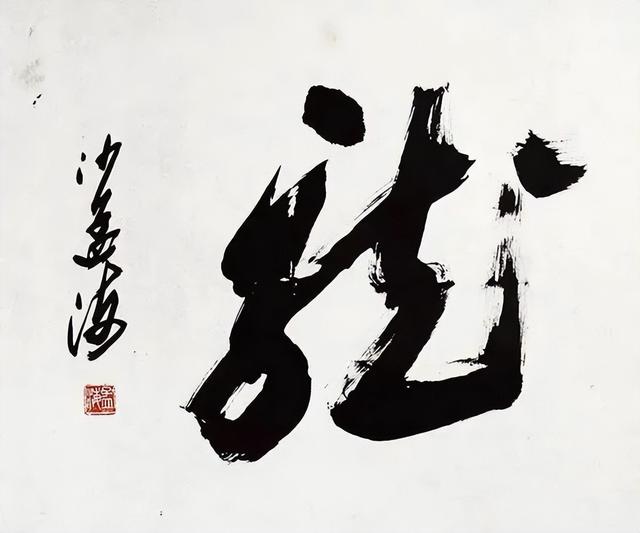 龍
沙孟海